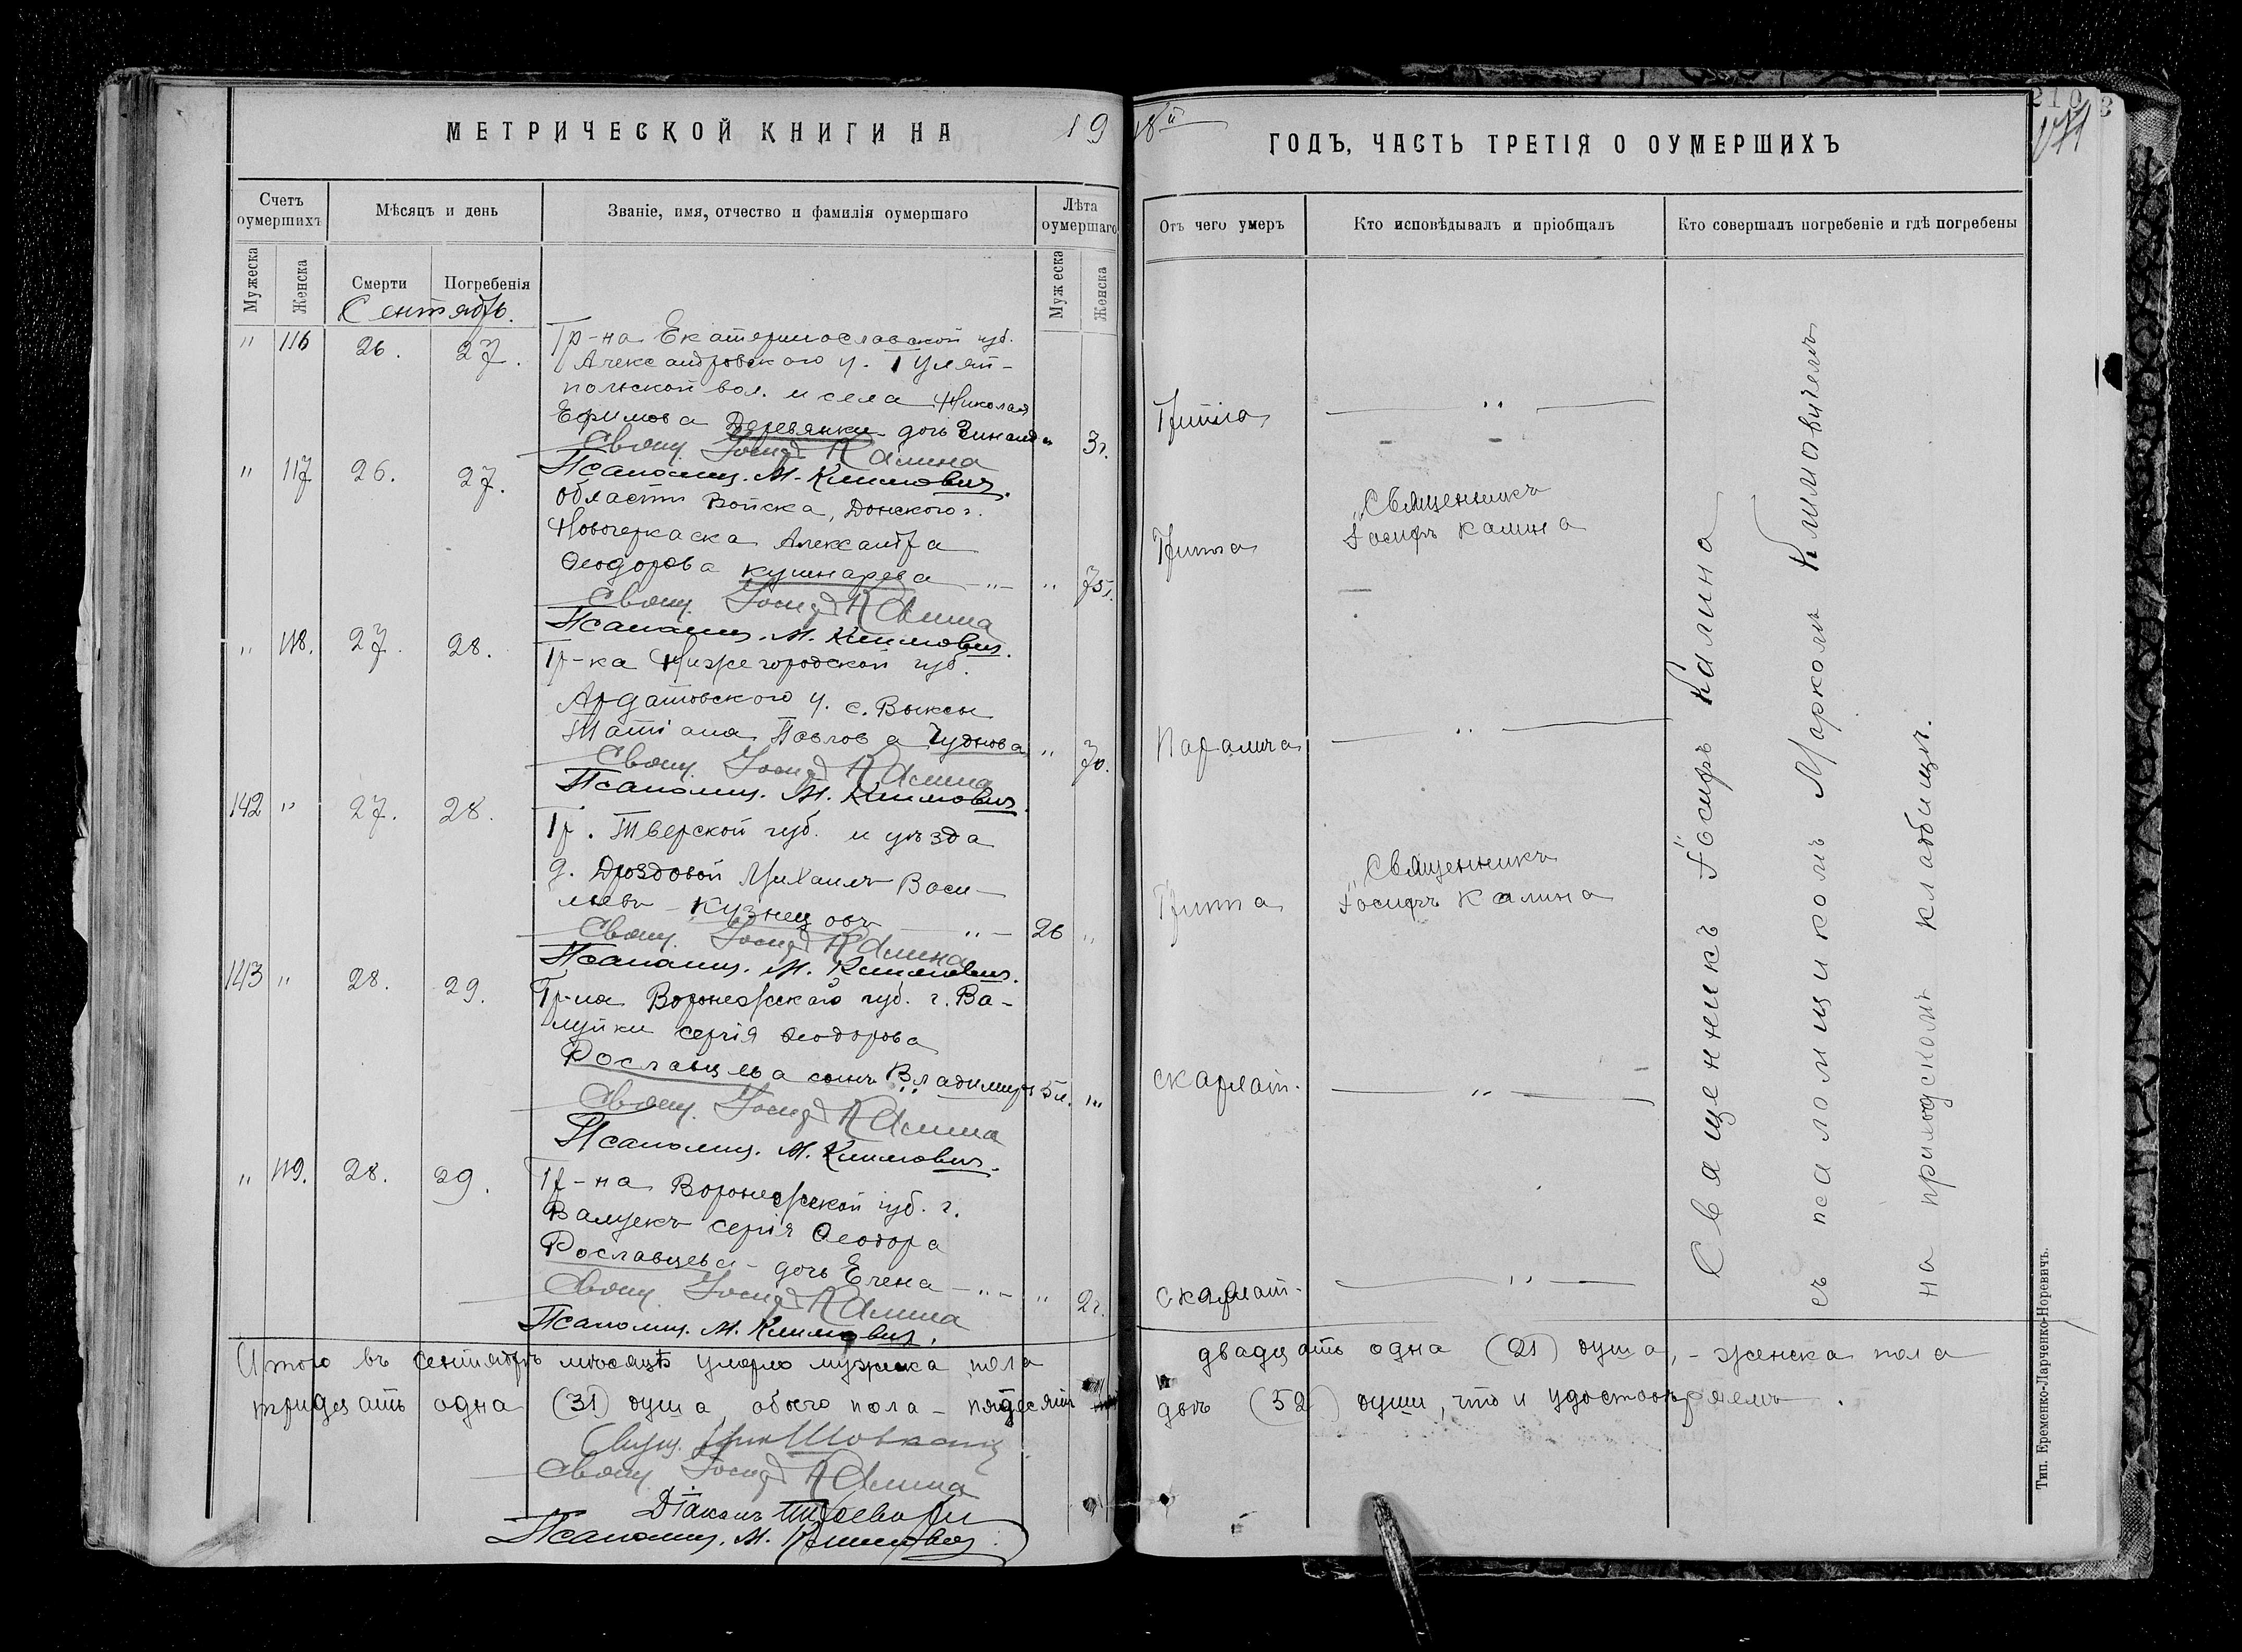 МЕТРИЧЕСКОЙ КНИГИ НА 19
Счетъ оумершихъ
Мѣсяцъ и день
Званіе, имя, отчество и фамилія оумершаго
Лѣта оумершаго
Мужеска
Женска
Смерти
Погребенія
Мужеска
Женска
Сентябрь.
" 116 26. 27.
Гр-на Екатеринославской губ.
Александровского у. Гуляй-
польской вол. и села Николая
Ефимова Деревянки дочь Зинаида 3г.
Свящ. Іосифъ Калина
Псаломщ. М. Климович.
" 117 26. 27.
области Войска Донского г.
Новочеркаска Александра
Ѳеодорова Кушнарева " 75г.
Свящ. Іосифъ Калина
Псаломщ. М. Климович.
" 118. 27. 28.
Гр-ка Нижегородской губ.
Ардатовского у. с. Выксы
Татіана Павлова Чуднова " 70.
Свящ. Іосифъ Калина
Псаломщ. М. Климович.
142 " 27. 28.
Гр. Тверской губ. и уѣзда
д. Дроздовой Михаилъ Васи-
льевъ Кузнецовъ 26 "
Свящ. Іосифъ Калина
Псаломщ. М. Климович.
143 " 28. 29.
Гр-на Воронежскаго губ. г. Ва-
луйки Сергія Ѳеодорова
Рославцева сынъ Владимиръ 5л. "
Свящ. Іосифъ Калина
Псаломщ. М. Климович.
" 119. 28. 29.
Гр-на Воронежской губ. г.
Валуекъ Сергія Ѳеодора
Рославцева - дочь Елена " 2г.
Свящ. Іосифъ Калина
Псаломщ. М. Климович.
Итого въ Сентябрѣ мѣсяцѣ умерло мужеска пола
тридцать одна (31) душа, обоего пола - пятдесятъ
Свящ.
Свящ. Іосифъ Калина
Діаконъ
Псаломщ. М. Климович.
18й
ГОДЪ, ЧАСТЬ ТРЕТІЯ О ОУМЕРШИХЪ
210
Отъ чего умеръ
Кто исповѣдывалъ и пріобщалъ
Кто совершалъ погребеніе и гдѣ погребены
Гриппа "
Гриппа Священникъ
Іосифъ Калина
Паралича "
Гриппа Священникъ
Іосифъ Калина
Скарлат. "
Скарлат. "
Священникъ Іосифъ Калина
съ псаломщикомъ Маркомъ Климовичемъ
на приходскомъ кладбищѣ.
двадцать одна (21) душа, - женска пола
двѣ (52) души, что и удостовѣряемъ.
Тип. Еременко-Ларченко-Норевичъ.